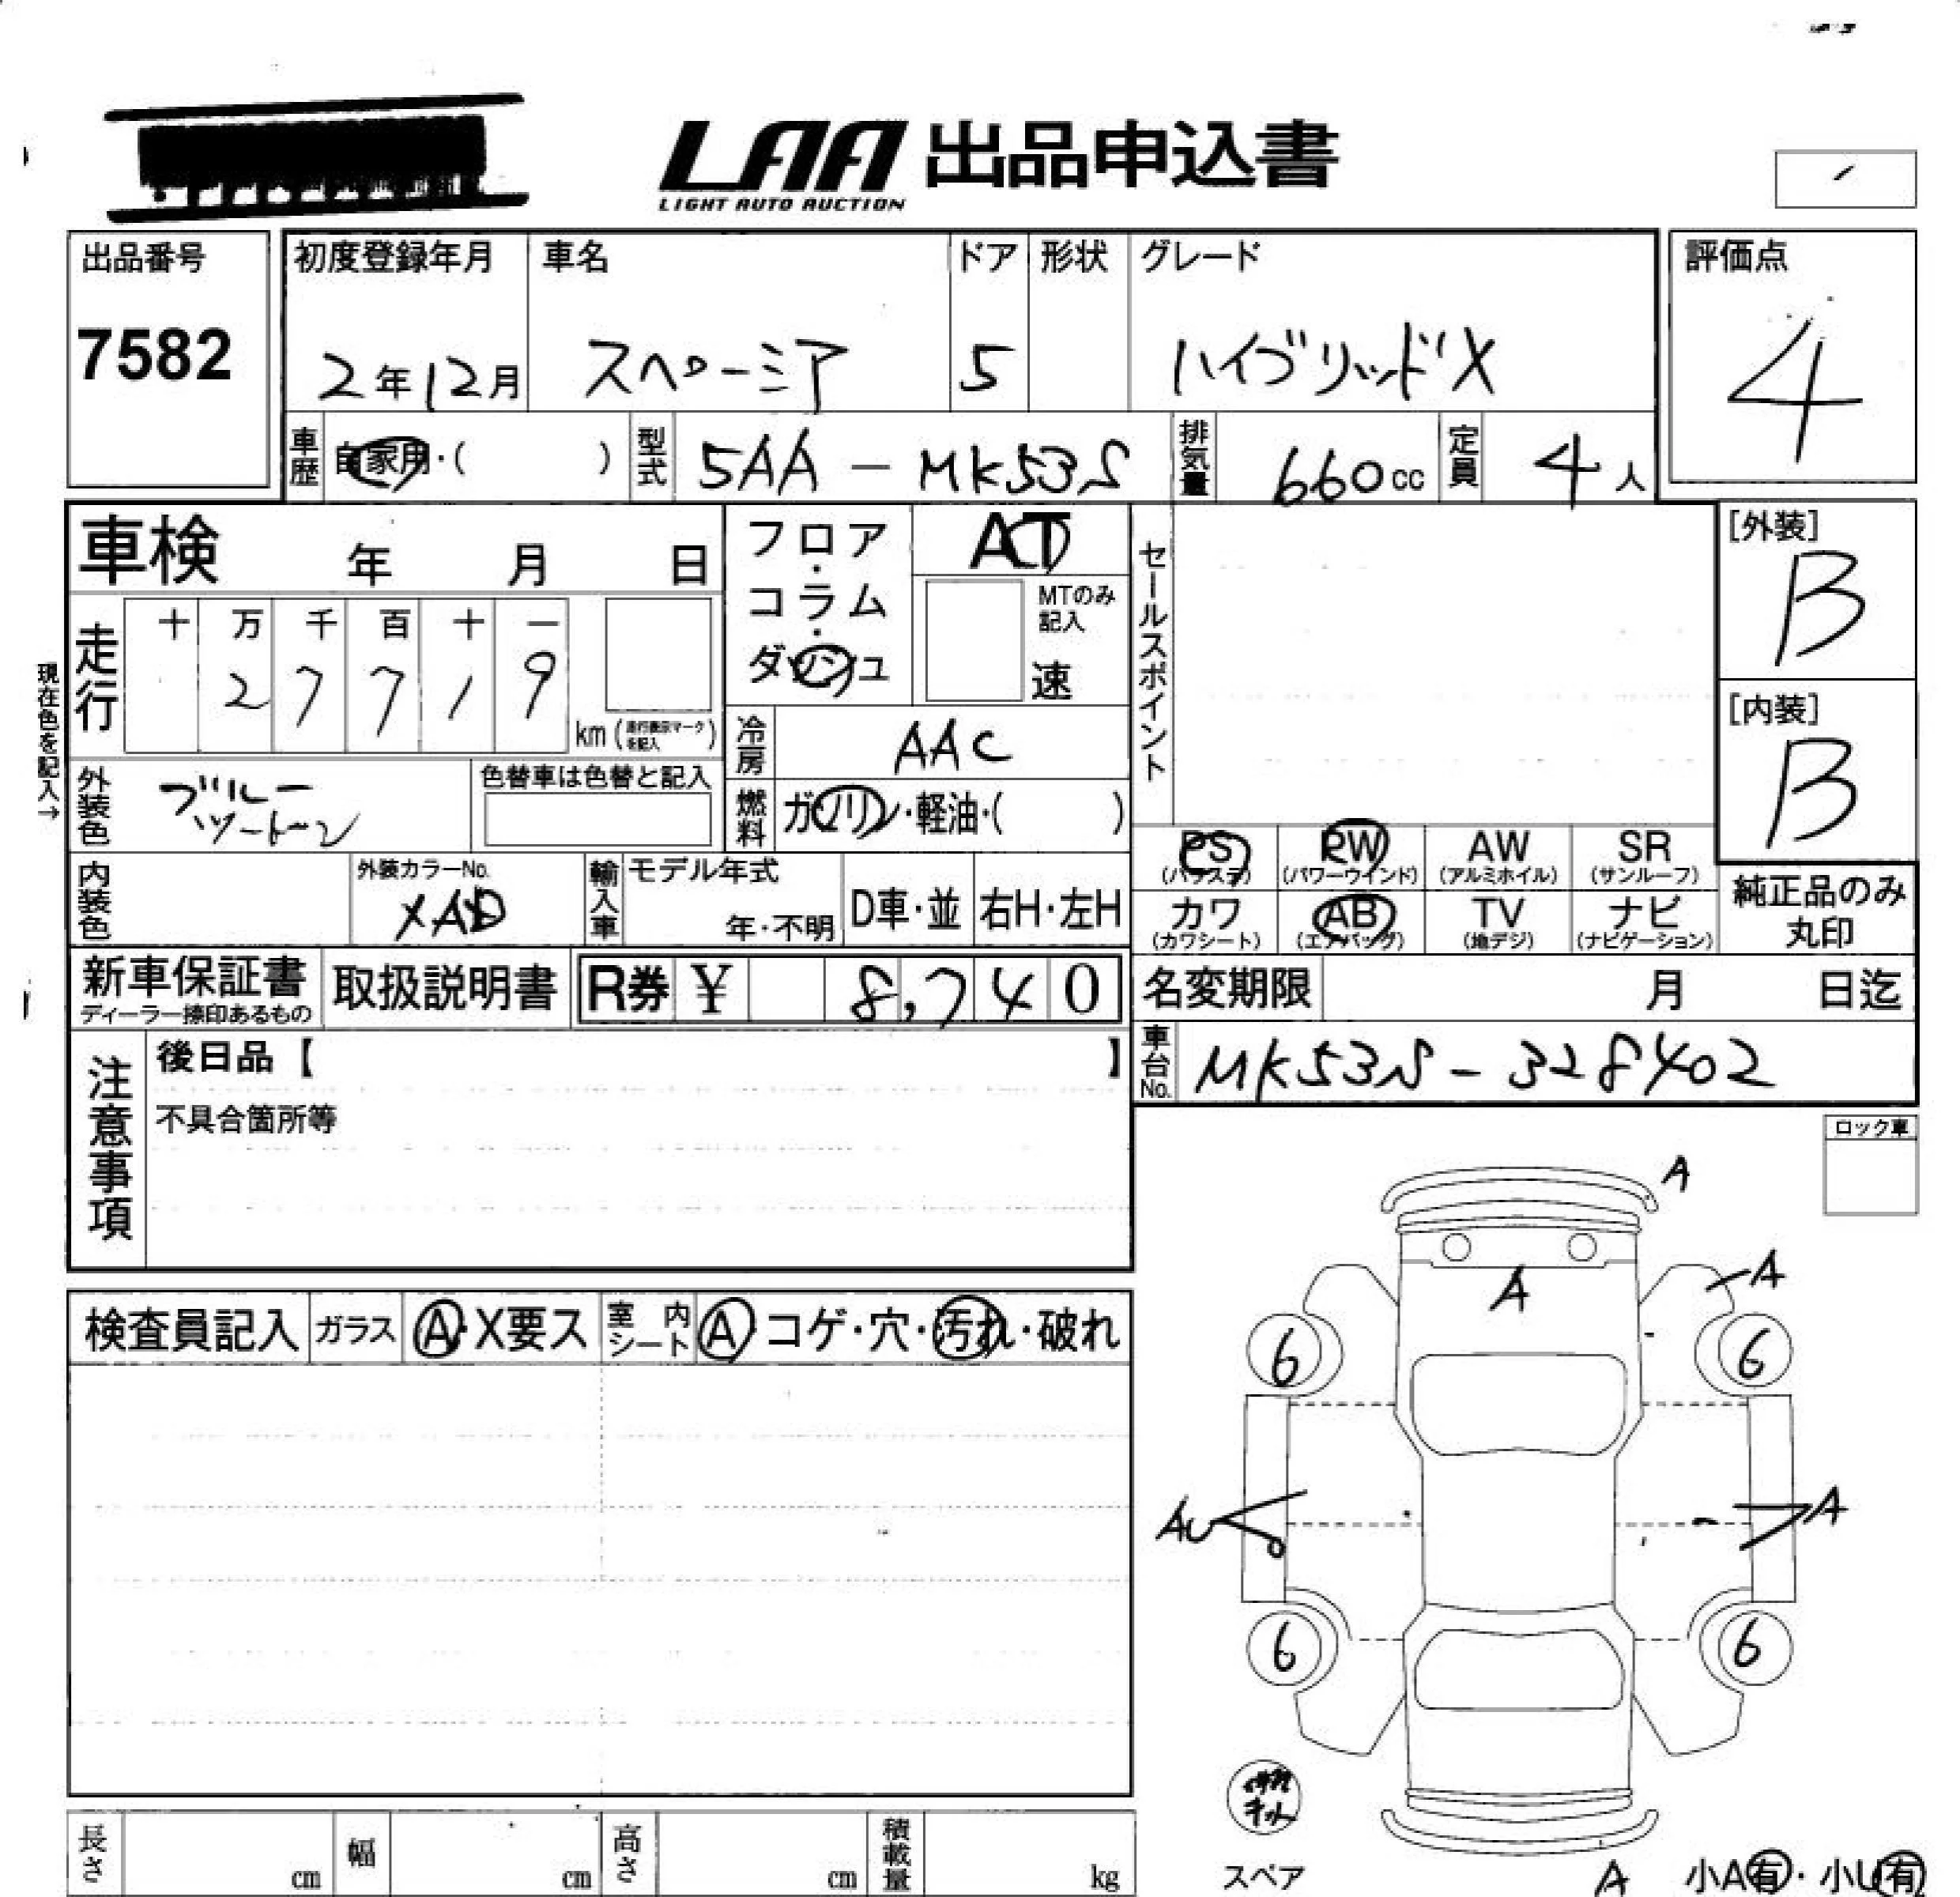 LAA 出品申込書
LIGHT AUTO AUCTION
出品番号
7582
初度登録年月 車名 ドア 形状 グレード
2年12月 スペーシア 5 ハイブリッドX
評価点
4
車歴 自家用・( ) 型式 5AA-MK53S 排気量 660cc 定員 4人
車検 年 月 日
フロア・コラム・ダッシュ
AT
MTのみ記入
速
セールスポイント
[外装]
B
[内装]
B
現在色を記入→
走行 十 万 千 百 十 一
2 7 7 1 9
km (走行表示マークを記入)
冷房 AAC
外装色 ブルーツートーン
色替車は色替と記入
燃料 ガソリン・軽油・( )
PS (パワステ) PW (パワーウインド) AW (アルミホイル) SR (サンルーフ)
カワ (カワシート) AB (エアバッグ) TV (地デジ) ナビ (ナビゲーション)
純正品のみ丸印
内装色
外装カラーNo.
輸入車 モデル年式 年・不明 D車・並 右H・左H
新車保証書 ディーラー捺印あるもの
取扱説明書
R券 ¥ 8,740
名変期限 月 日迄
車台No. MK53S-328402
注意事項
後日品【 】
不具合箇所等
ロック車
検査員記入 ガラス A・X要ス 室内シート A・コゲ・穴・汚れ・破れ
A
A
A
6 6
AU A
6 6
スペア
A
小A有・小U有
長さ cm 幅 cm 高さ cm 積載量 kg